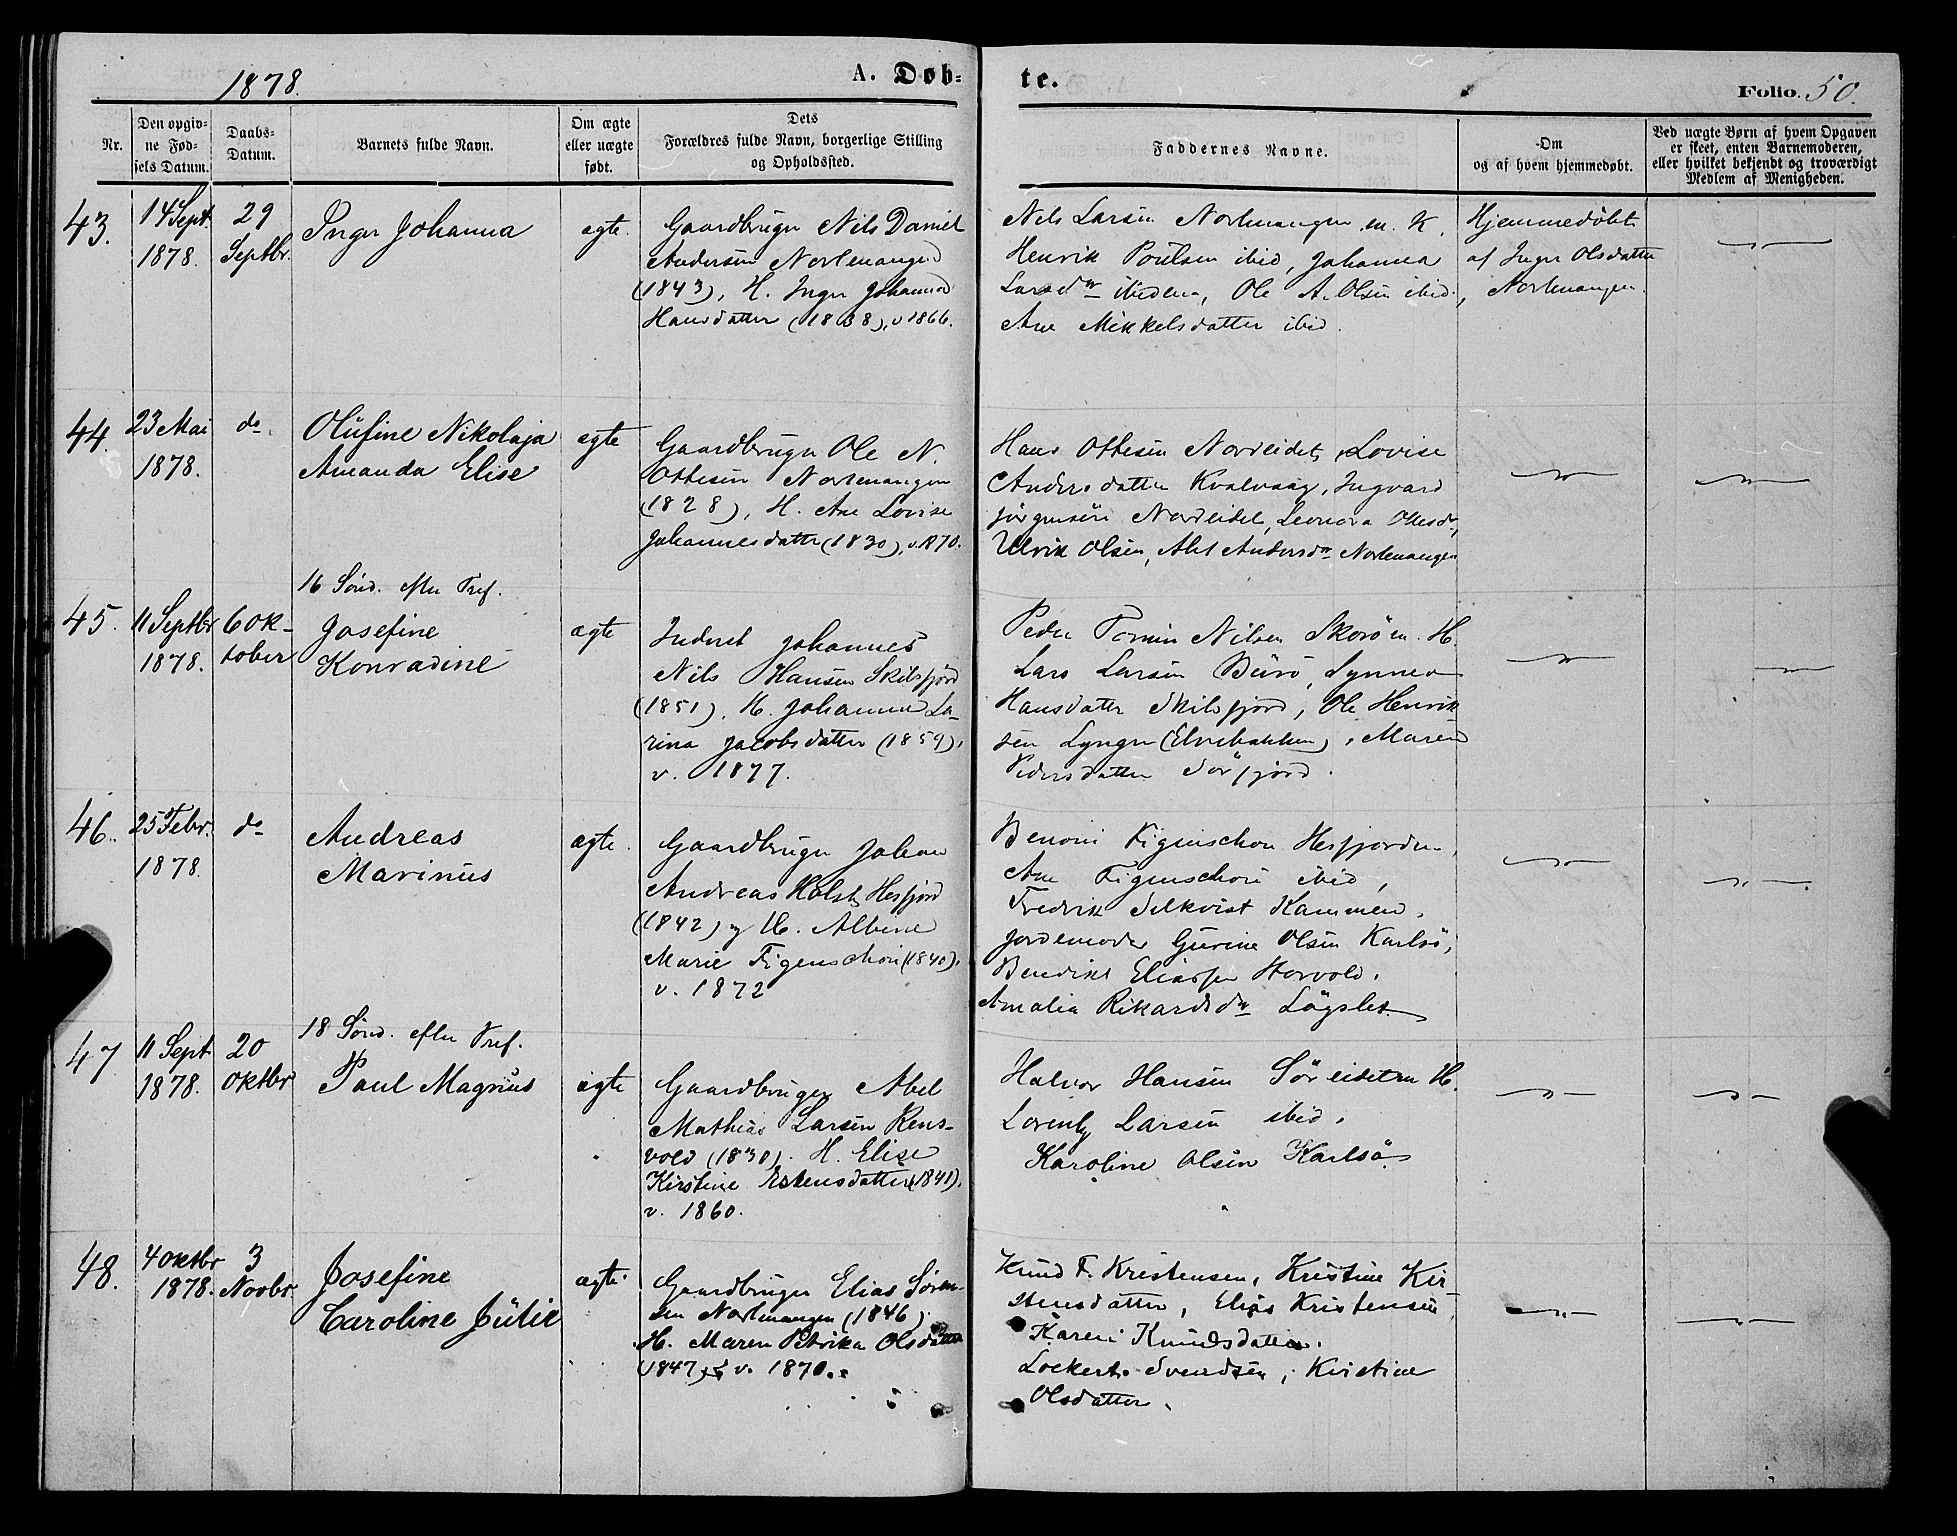 1878.
A. Døb-
te.
Folio. 50.
Nr.
Den opgiv-
ne Fød-
sels Datum.
Daabs-
Datum.
Barnets fulde Navn.
Om ægte
eller uægte
født.
Dets
Forældres fulde Navn, borgerlige Stilling
og Opholdssted.
Faddernes Navne.
Om
og af hvem hjemmedøbt.
Ved uægte Børn af hvem Opgaven
er skeet, enten Barnemoderen,
eller hvilket bekjendt og troværdigt
Medlem af Menigheden.
43.
14 Sept.
1878.
29
Septbr.
Inger Johanna
ægte.
Gaardbruger Nils Daniel
Andersen Nordmangen
(1843), H. Inger Johanna
Hansdatter (1838), v 1866.
Nils Larsen Nordmangen m. K.
Henrik Poulsen ibid, Johanna
Larsdr ibidem, Ole A. Olsen ibid.
Ane Mikkelsdatter ibid.
Hjemmedøbt
af Inger Olsdatter
Nordmangen.
44.
23 Mai
1878.
do.
Olufine Nikolaja
Amanda Elise
ægte
Gaardbruger Ole N.
Ottesen Nordmangen
(1828), H. Ane Lovise
Johannesdatter (1830), v. 1870.
Hans Ottesen Nordeidet, Lovise
Andersdatter Kvalvaag, Ingvard
Jørgensen Nordeidet, Leonora Olesdr,
Ulrik Olsen, Andersdr Nordmangen
16 Sønd. efter Tref.
45.
11 Septbr
1878.
6 Ok-
tober
Josefine
Konradine
ægte
Inderst Johannes
Nils Hansen Skilsfjord
(1851). H. Johanna La-
rina Jacobsdatter (1859),
v. 1877.
Peder Nilsen Skorö m. H.
Lars Larsen Synnev
Hansdatter Skilsfjord, Ole Henrik-
sen Lyngen (Elvebakken), Maren
Pedersdatter Sörfjord.
46.
25 Febr.
1878.
do
Andreas
Marinus
ægte.
Gaardbruger Johan
Andreas Holst Hesfjord
(1842) og H. Albine
Marie Figenschou (1840),
v. 1872
Benoni Figenschou Hesfjorden,
Ane Figenschou ibid,
Fredrik Selkvist Kammen,
Jordemoder Gurine Olsen Karlsö,
Benedikt Eliassen Storvold,
Amalia Rikardsdr Lögslet.
18 Sønd. efter Tref.
47
11 Sept.
1878.
20
Oktbr
Paul Magnus
ægte
Gaardbruger Abel
Mathias Larsen Rens-
vold (1830). H. Elise
Kirstine Estensdatter (1841).
v. 1860.
Halvor Hansen Söreidet m H.
Lorentz Larsen ibid.
Karoline Olsen Karlsö
48.
4 Oktbr
1878.
3
Novbr
Josefine
Caroline Julie
ægte.
Gaardbruger Elias Sören-
sen Nordmangen (1846)
H. Maren Petrika Olsdatter
(1847), v. 1870.
Knud F. Kristensen, Kristine Kir-
stensdatter, Elias Kristensen
Karen Knudsdatter.
Lockert Svendsen, Kristine
Olsdatter.